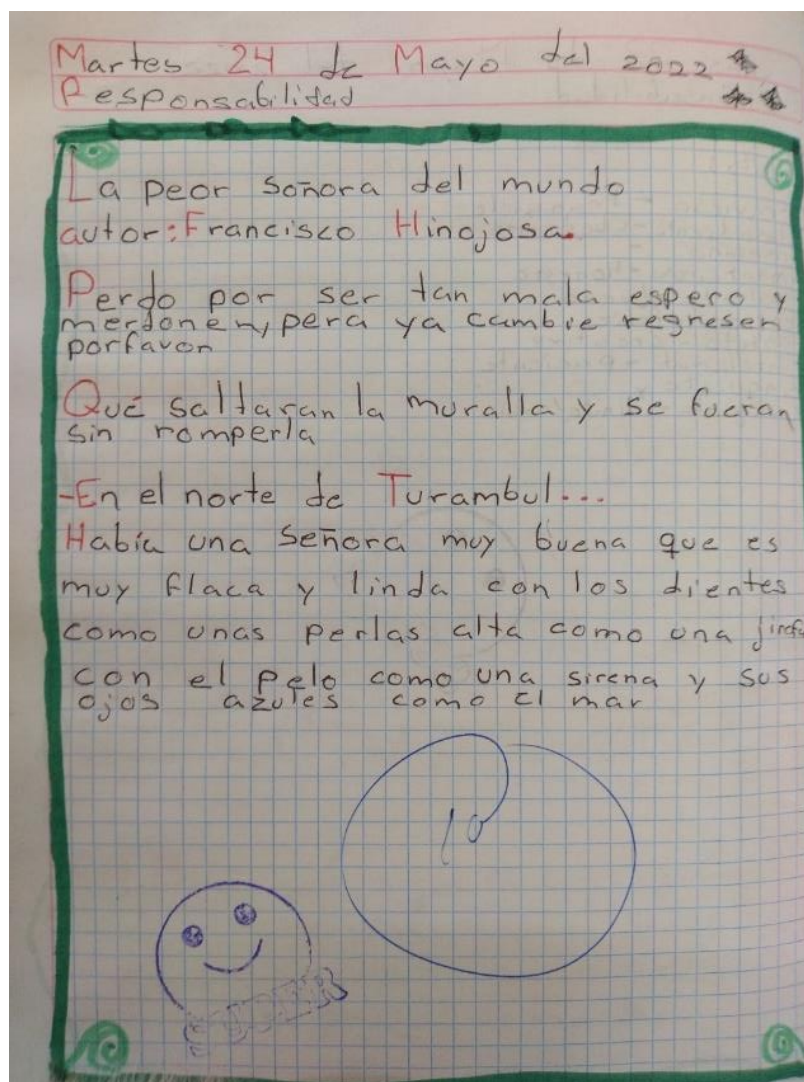 Martes 24 de Mayo del 2022
Responsabilidad
La peor soñora del mundo
autor: Francisco Hinojosa.
Perdo por ser tan mala espero y
merdonen, pera ya cambie regresen
porfavor
Qué saltaran la muralla y se fueran
sin romperla
-En el norte de Turambul...
Había una Señora muy buena que es
muy flaca y linda con los dientes
como unas perlas alta como una jirafa
con el pelo como una sirena y sus
ojos azules como el mar
10
SUPER